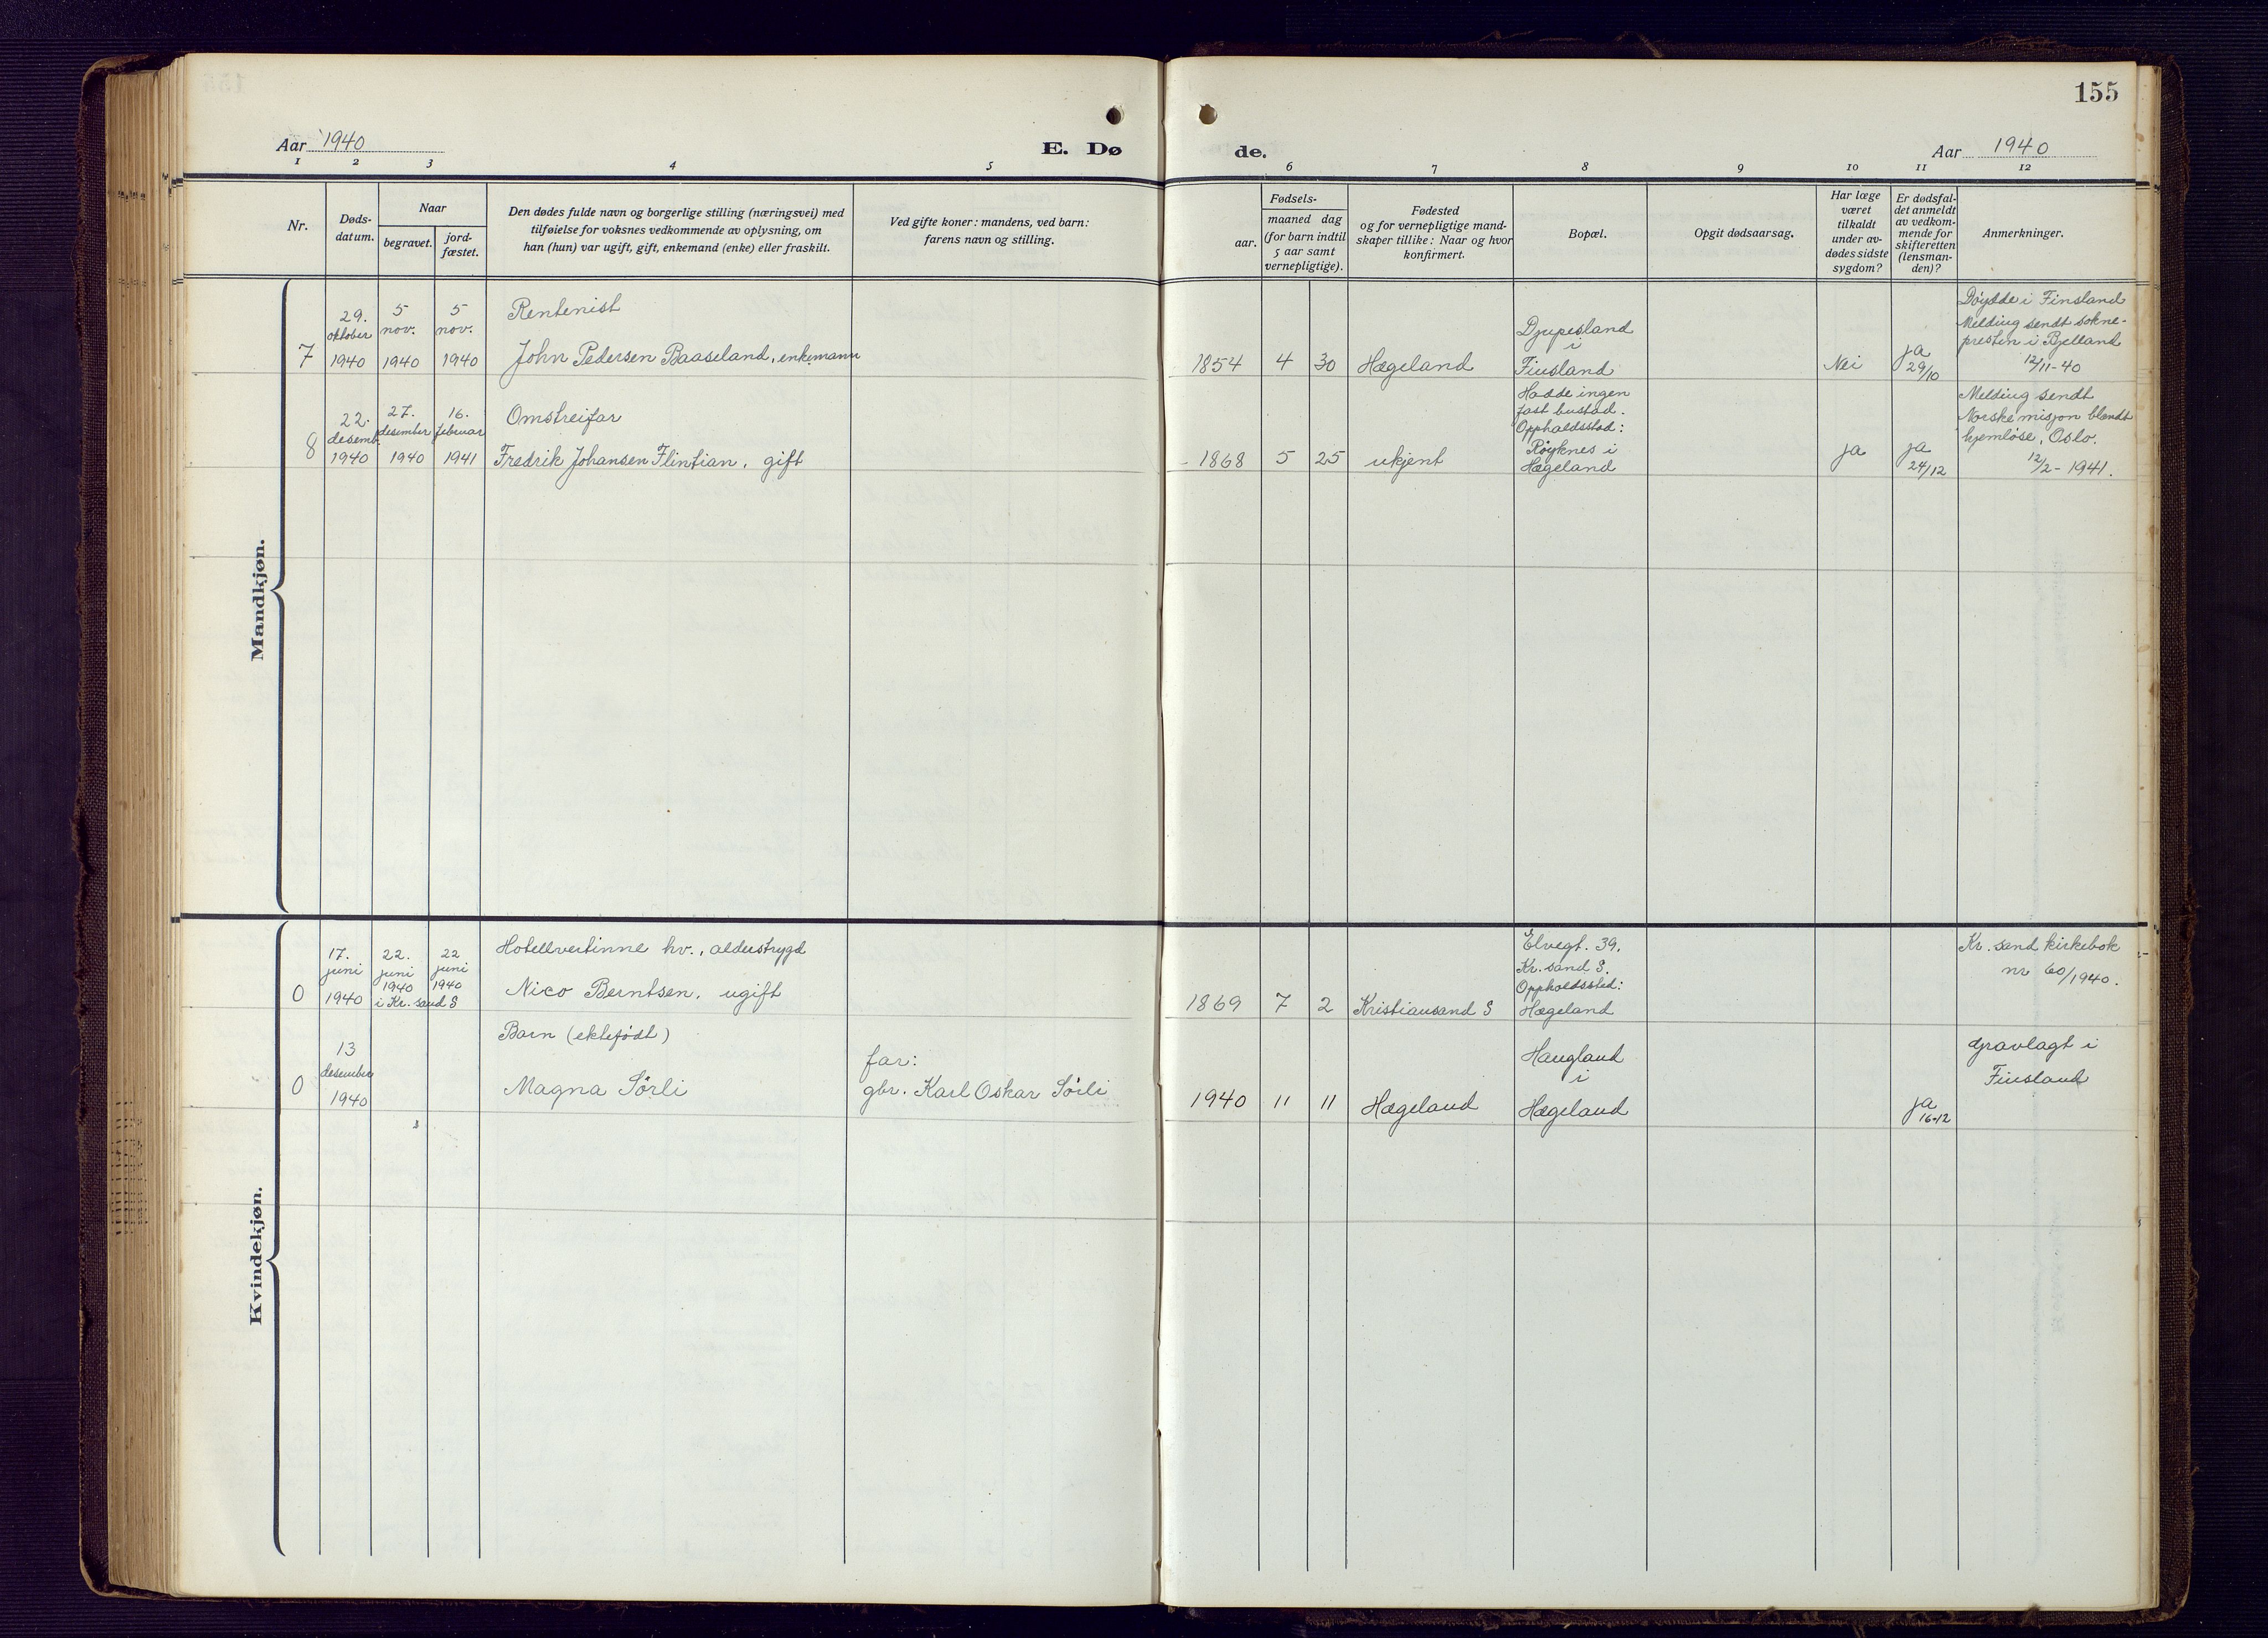 155
Aar 1940
E. Døde.
Aar 1940
1 2 3 4 5 6 7 8 9 10 11 12
Nr.
Døds-
datum.
Naar
begravet.
jord-
fæstet.
Den dødes fulde navn og borgerlige stilling (næringsvei) med
tilføielse for voksnes vedkommende av oplysning, om
han (hun) var ugift, gift, enkemand (enke) eller fraskilt.
Ved gifte koner: mandens, ved barn:
farens navn og stilling.
Fødsels-
aar.
maaned dag
(for barn indtil
5 aar samt
vernepligtige).
Fødested
og for vernepligtige mand-
skaper tillike: Naar og hvor
konfirmert.
Bopæl.
Opgit dødsaarsag.
Har læge
været
tilkaldt
under av-
dødes sidste
sygdom?
Er dødsfal-
det anmeldt
av vedkom-
mende for
skifteretten
(lensman-
den)?
Anmerkninger.
Mandkjøn.
7
29.
oktober
1940
5
nov.
1940
5
nov.
1940
Rentenist
John Pedersen Baaseland, enkemann
1854
4
30
Hægeland
Djupesland
i
Finsland
Nei
ja
29/10
Döydde i Finsland
Melding sendt sokne-
presten i Bjelland
12/11-40
8
22.
desemb.
1940
27.
desember
1940
16.
februar
1941
Omstreifar
Fredrik Johansen Flintian, gift
1868
5
25
ukjent
Hadde ingen
fast bustad.
Oppholdsstad:
Röyknes i
Hægeland
ja
ja
24/12
Melding sendt
Norske misjon blandt
hjemlöse, Oslo.
12/2-1941.
Kvindekjøn.
0
17.
juni
1940
22.
juni
1940
22
juni
1940
i Kr. sand S
Hotellvertinne hv., alderstrygd
Nico Berntsen, ugift
1869
7
2
Kristiansand S
Elvegt. 39.
Kr. sand S.
Oppholdssted:
Hægeland
Kr. sand kirkebok
nr 60/1940.
0
13
desember
1940
Barn (ektefödt)
Magna Sörli
far:
gbr. Karl Oskar Sörli
1940
11
11
Hægeland
Haugland
i
Hægeland
ja
16-12
gravlagt i
Finsland